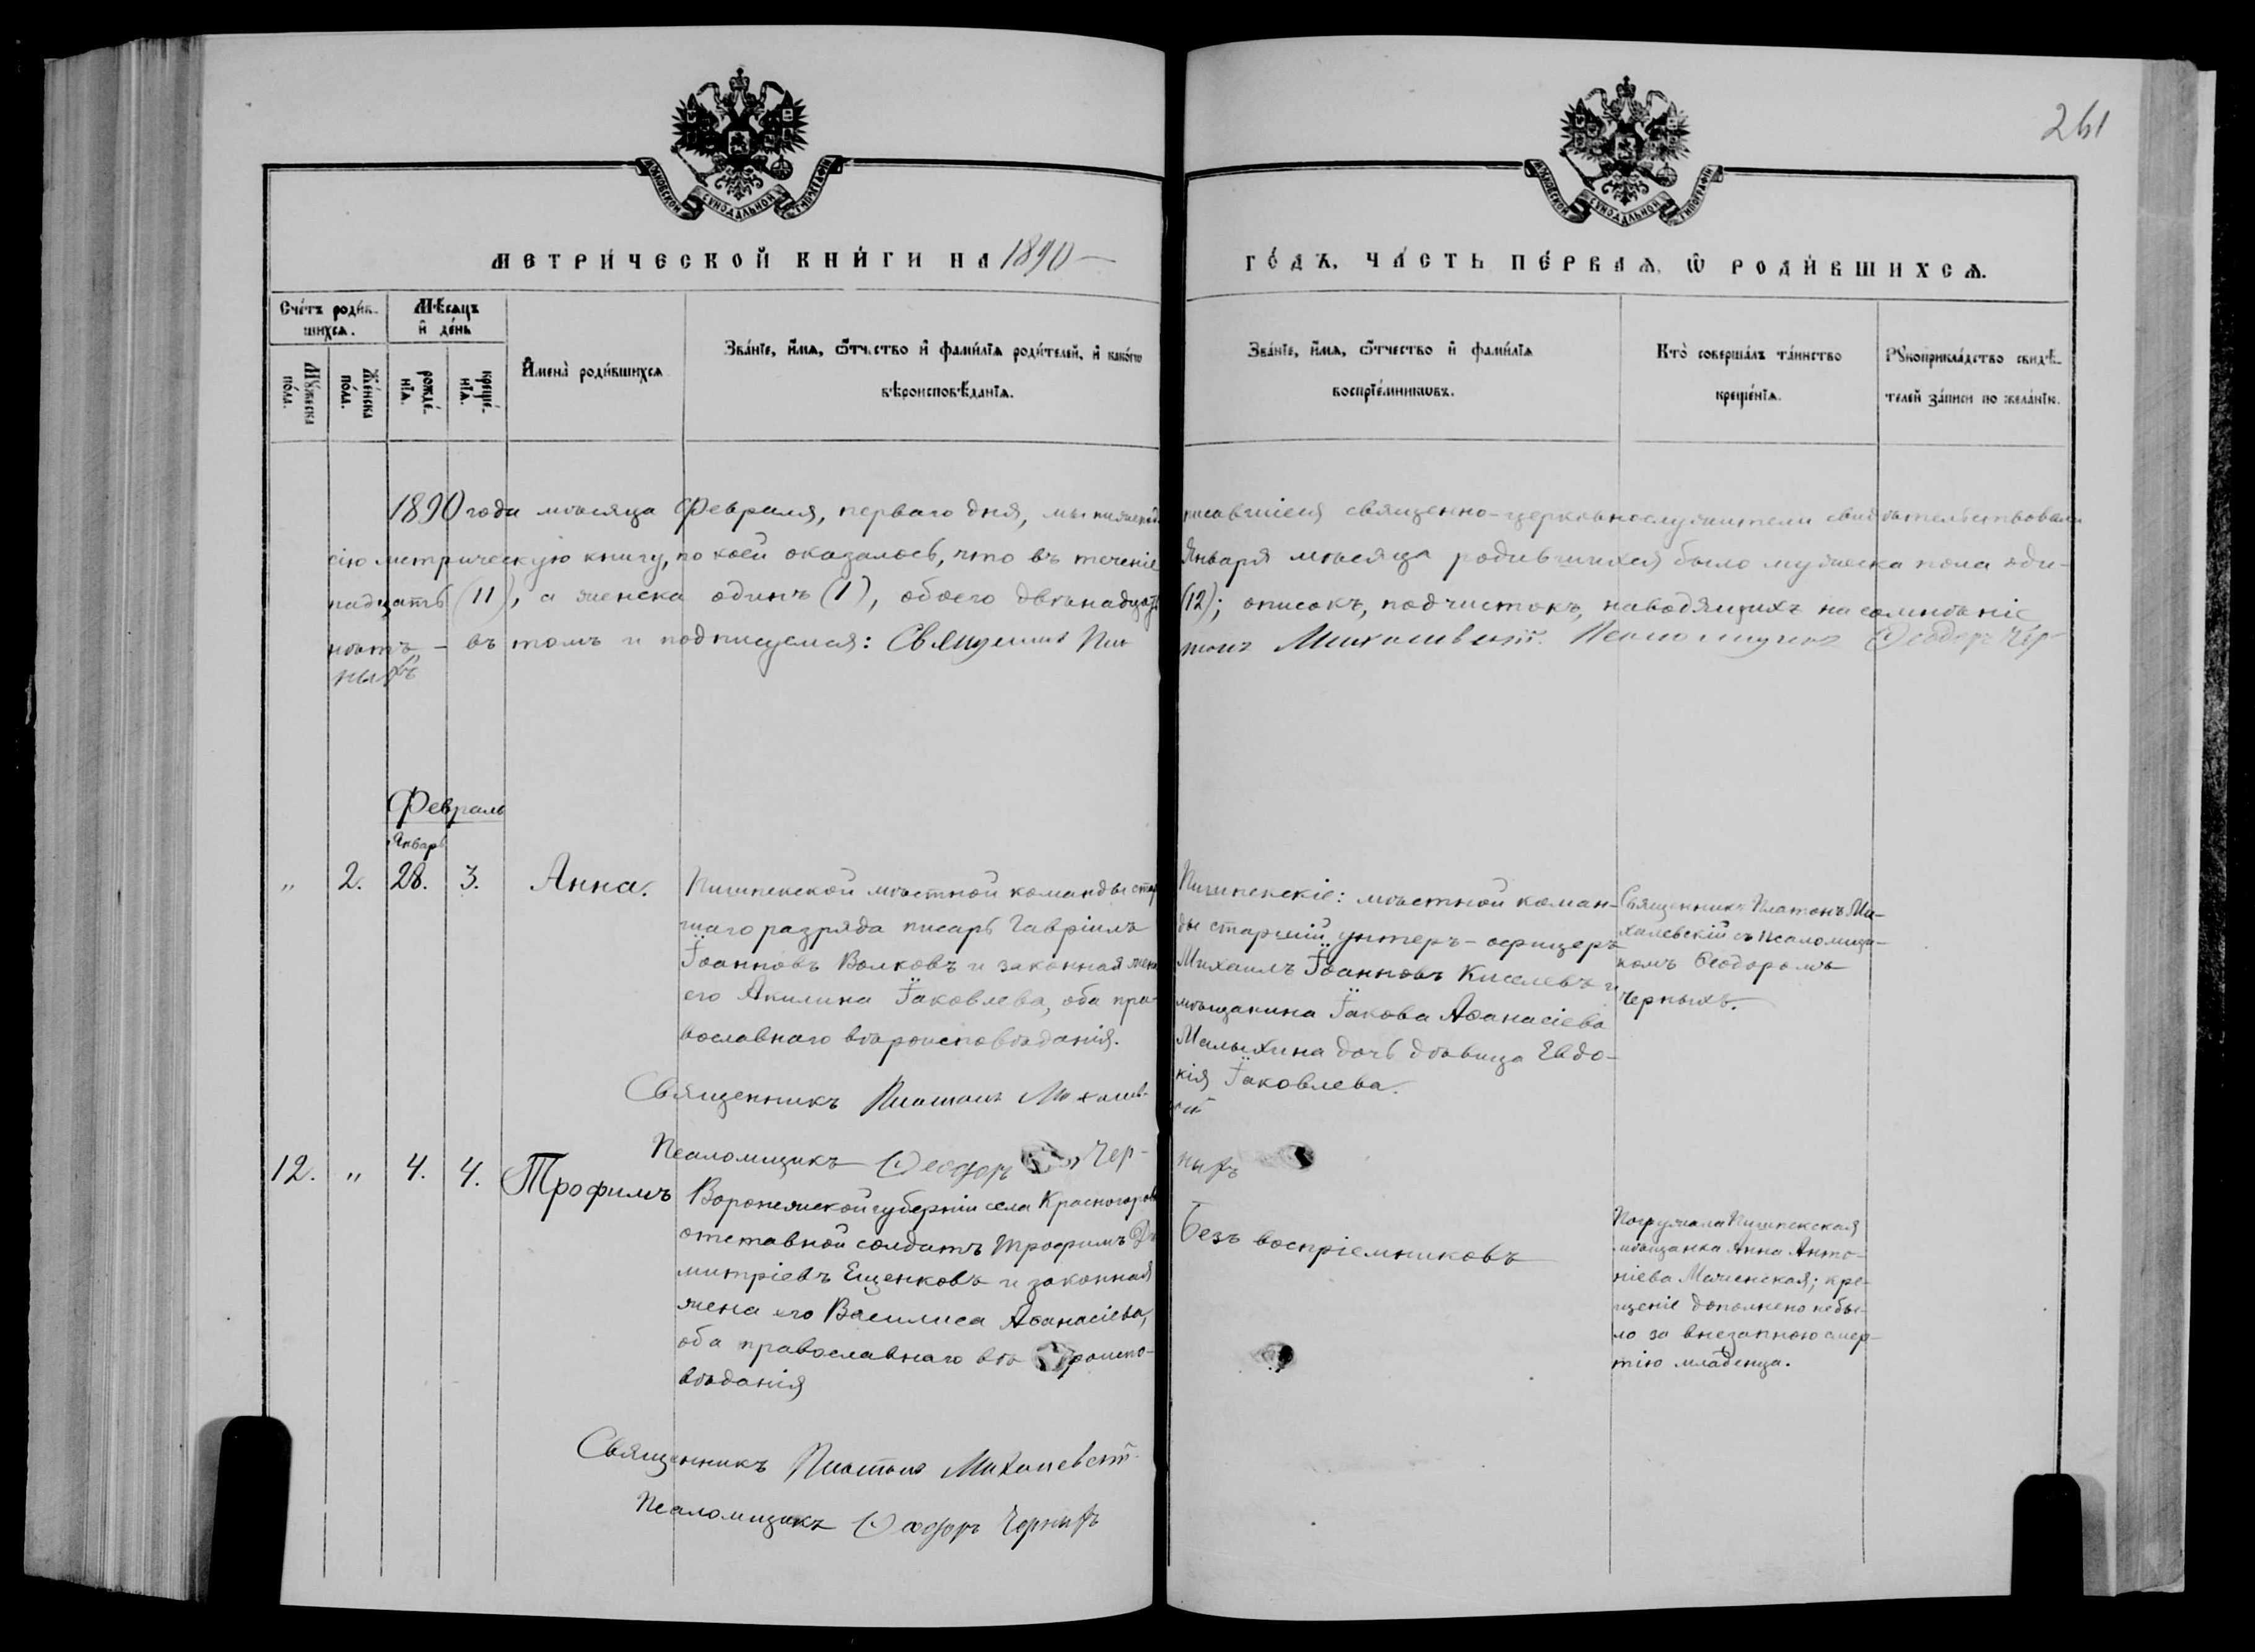 261
МОСКОВСКОЙ СѴНОДАЛЬНОЙ ТИПОГРАФІИ
МОСКОВСКОЙ СѴНОДАЛЬНОЙ ТИПОГРАФІИ
МЕТРИ́ЧЕСКОЙ КНИ́ГИ НА 1890 —
ГО́ДЪ, ЧА́СТЬ ПЕ́РВАѦ, Ѽ РОДИ́ВШИХСѦ.
Сче́тъ роди́в-
шихсѧ.
Мѣ́сѧцъ
и҆ де́нь
Мꙋ́жеска
по́ла.
Же́нска
по́ла.
рожде́-
нїѧ.
креще́-
нїѧ.
И҆мена̀ роди́вшихсѧ
Зва́нїе, и҆́мѧ, ѻ҆́тчество и҆ фами́лїѧ роди́телей, и҆ како́гѡ
вѣроисповѣ́данїѧ.
Зва́нїе, и҆́мѧ, ѻ҆́тчество и҆ фами́лїѧ
воспрїе́мникѡвъ.
Кто̀ соверша́лъ та́инство
креще́нїѧ.
Рꙋкоприкла́дство свидѣ́-
телей за́писи по жела́нїю.
1890 года мѣсяца Февраля, перваго дня, мы нижепод
писавшіеся священно-церковнослужители свидѣтельствовали
сію метрическую книгу, по коей оказалось, что въ теченіе
Января мѣсяца родившихся было мужеска пола оди-
надцать (11), а женска одинъ (1), обоего двѣнадцать
(12); описокъ, подчистокъ, наводящихъ на сомнѣніе
нѣтъ – въ томъ и подписуемся: Священникъ Пла
тонъ Михалевскій. Псаломщикъ Ѳеодоръ Чер-
ныхъ
Февраль
Январь
„ 2. 28. 3. Анна.
Пишпекской мѣстной команды стар
шаго разряда писарь Гавріилъ
Іоанновъ Волковъ и законная жена
его Акилина Іаковлева, оба пра-
вославнаго вѣроисповѣданія.
Пишпекскіе: мѣстной коман-
ды старшій унтеръ-офицеръ
Михаилъ Іоанновъ Киселевъ и
мѣщанина Іакова Аѳанасіева
Малыхина дочь дѣвица Евдо-
кія Іаковлева.
Священникъ Платонъ Ми-
халевскій съ псаломщи-
комъ Ѳеодоромъ
Черныхъ.
Священникъ Платонъ Михалев-
скій
Псаломщикъ Ѳеодоръ Чер-
ныхъ
12. „ 4. 4. Трофимъ
Воронежской губерніи села Красногоровки
отставной солдатъ Трофимъ Ди
митріевъ Ещенковъ и законная
жена его Василиса Аѳанасіева,
оба православнаго вѣроиспо-
вѣданія
Безъ воспріемниковъ
Погружала Пишпекская
мѣщанка Анна Анто-
ніева Маченская; кре-
щеніе дополнено небы-
ло за внезапною смер-
тію младенца.
Священникъ Платонъ Михалевскій
Псаломщикъ Ѳеодоръ Черныхъ